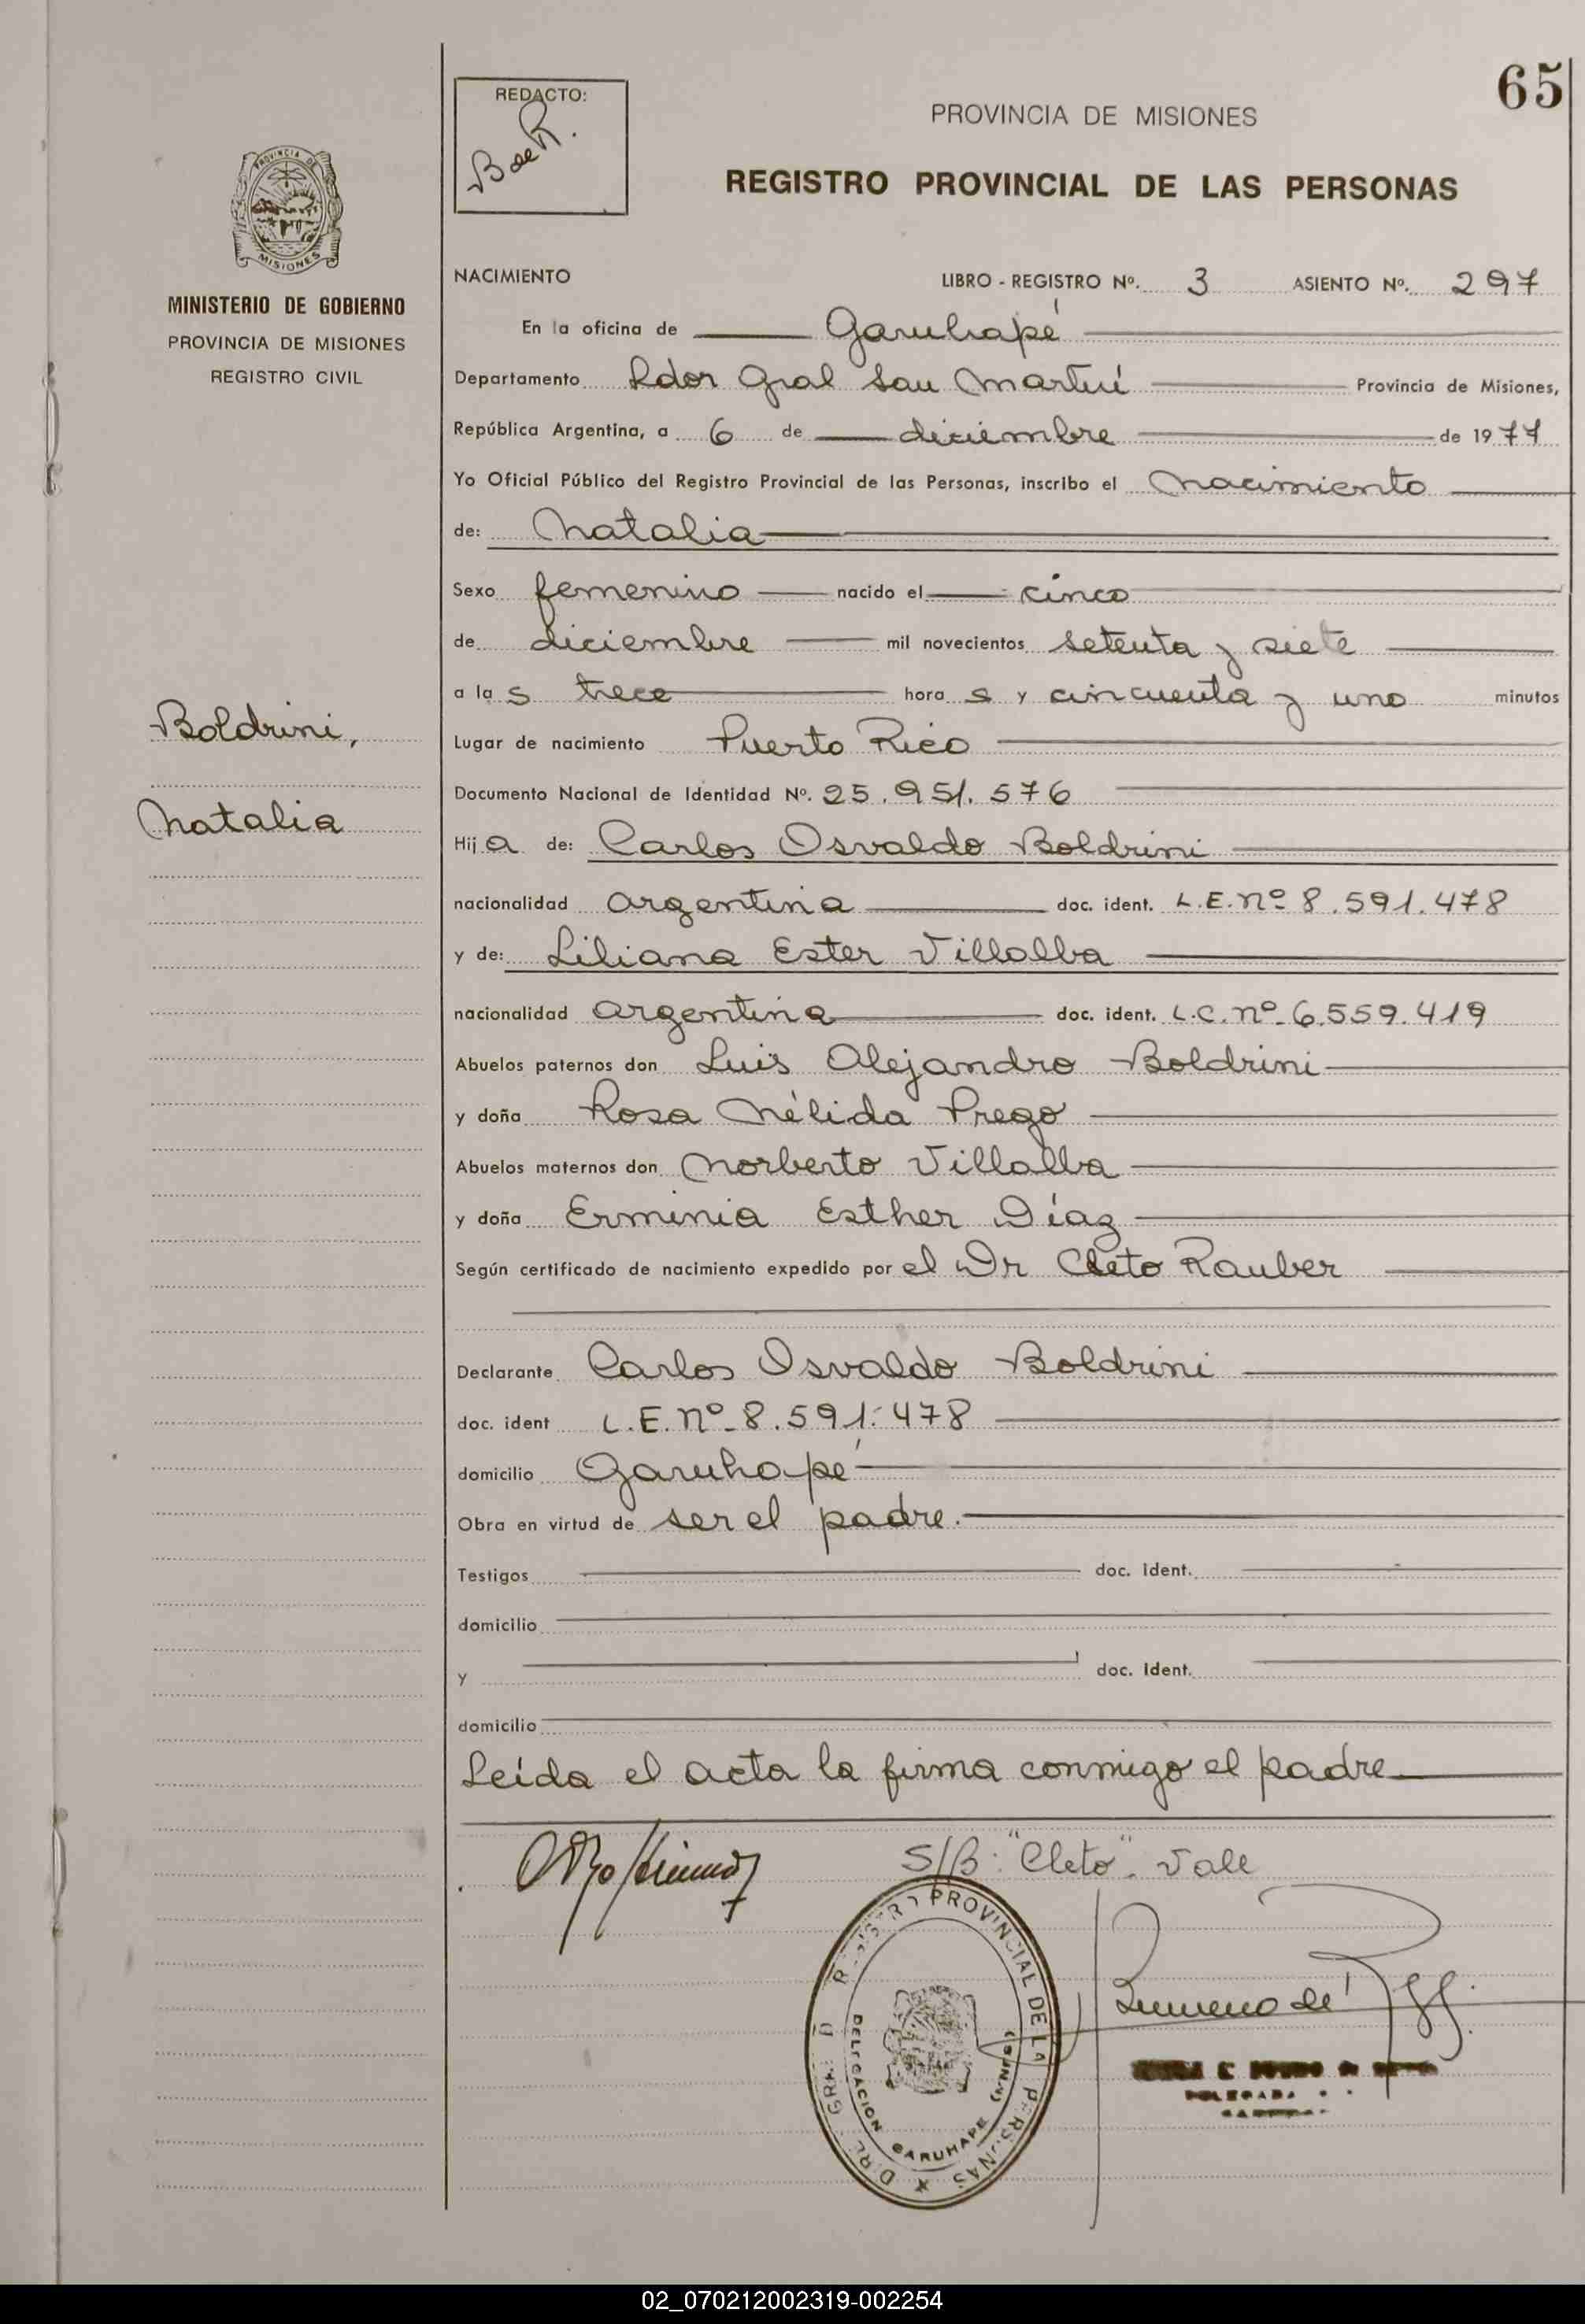 65
REDACTO:
B de R.
PROVINCIA DE MISIONES
REGISTRO PROVINCIAL DE LAS PERSONAS
PROVINCIA DE
MISIONES
MINISTERIO DE GOBIERNO
PROVINCIA DE MISIONES
REGISTRO CIVIL
Boldrini,
Natalia
NACIMIENTO LIBRO - REGISTRO Nº. 3 ASIENTO Nº. 297
En la oficina de Garuhapé
Departamento Ldor Gral San Martín Provincia de Misiones,
República Argentina, a 6 de diciembre de 1977
Yo Oficial Público del Registro Provincial de las Personas, inscribo el nacimiento
de: Natalia
Sexo femenino nacido el cinco
de diciembre mil novecientos setenta y siete
a la s trece hora s y cincuenta y uno minutos
Lugar de nacimiento Puerto Rico
Documento Nacional de Identidad Nº. 25.951.576
Hij a de: Carlos Osvaldo Boldrini
nacionalidad argentina doc. ident. L.E.nº 8.591.478
y de: Liliana Ester Villalba
nacionalidad argentina doc. ident. L.C.nº 6.559.419
Abuelos paternos don Luis Alejandro Boldrini
y doña Rosa Nélida Prego
Abuelos maternos don Norberto Villalba
y doña Erminia Esther Díaz
Según certificado de nacimiento expedido por el Dr Cleto Rauber
Declarante Carlos Osvaldo Boldrini
doc. ident L.E.nº 8.591.478
domicilio Garuhapé
Obra en virtud de ser el padre.
Testigos doc. ident.
domicilio
y doc. Ident.
domicilio
Leída el acta la firma conmigo el padre
S/B: "Cleto". Vale
PROVINCIAL DE LA PERSONAS
DELEGACION GARUHAPE
02_070212002319-002254